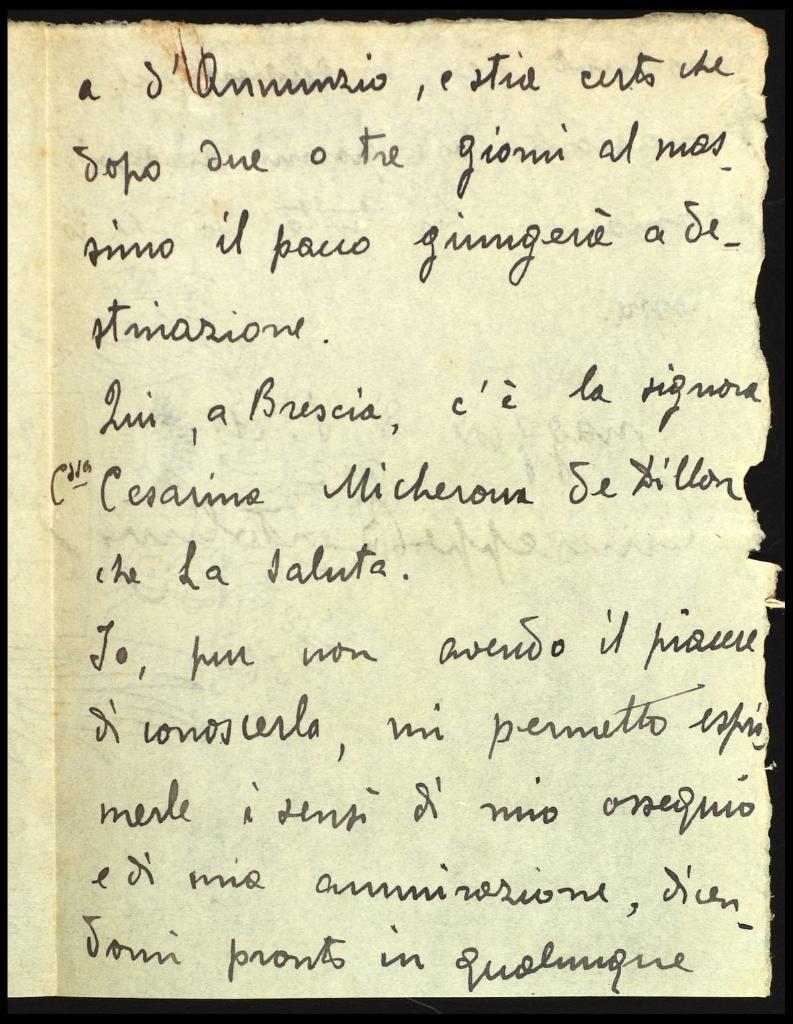 a d'Annunzio, e stia certo che
dopo due o tre giorni al mas-
simo il pacco giungerà a de-
stinazione.
Qui, a Brescia, c'è la signora
C.ssa Cesarina Micheroux de Dillon
che La saluta.
Io, pur non avendo il piacere
di conoscerla, mi permetto espri-
merle i sensi di mio ossequio
e di mia ammirazione, dicen-
domi pronto in qualunque